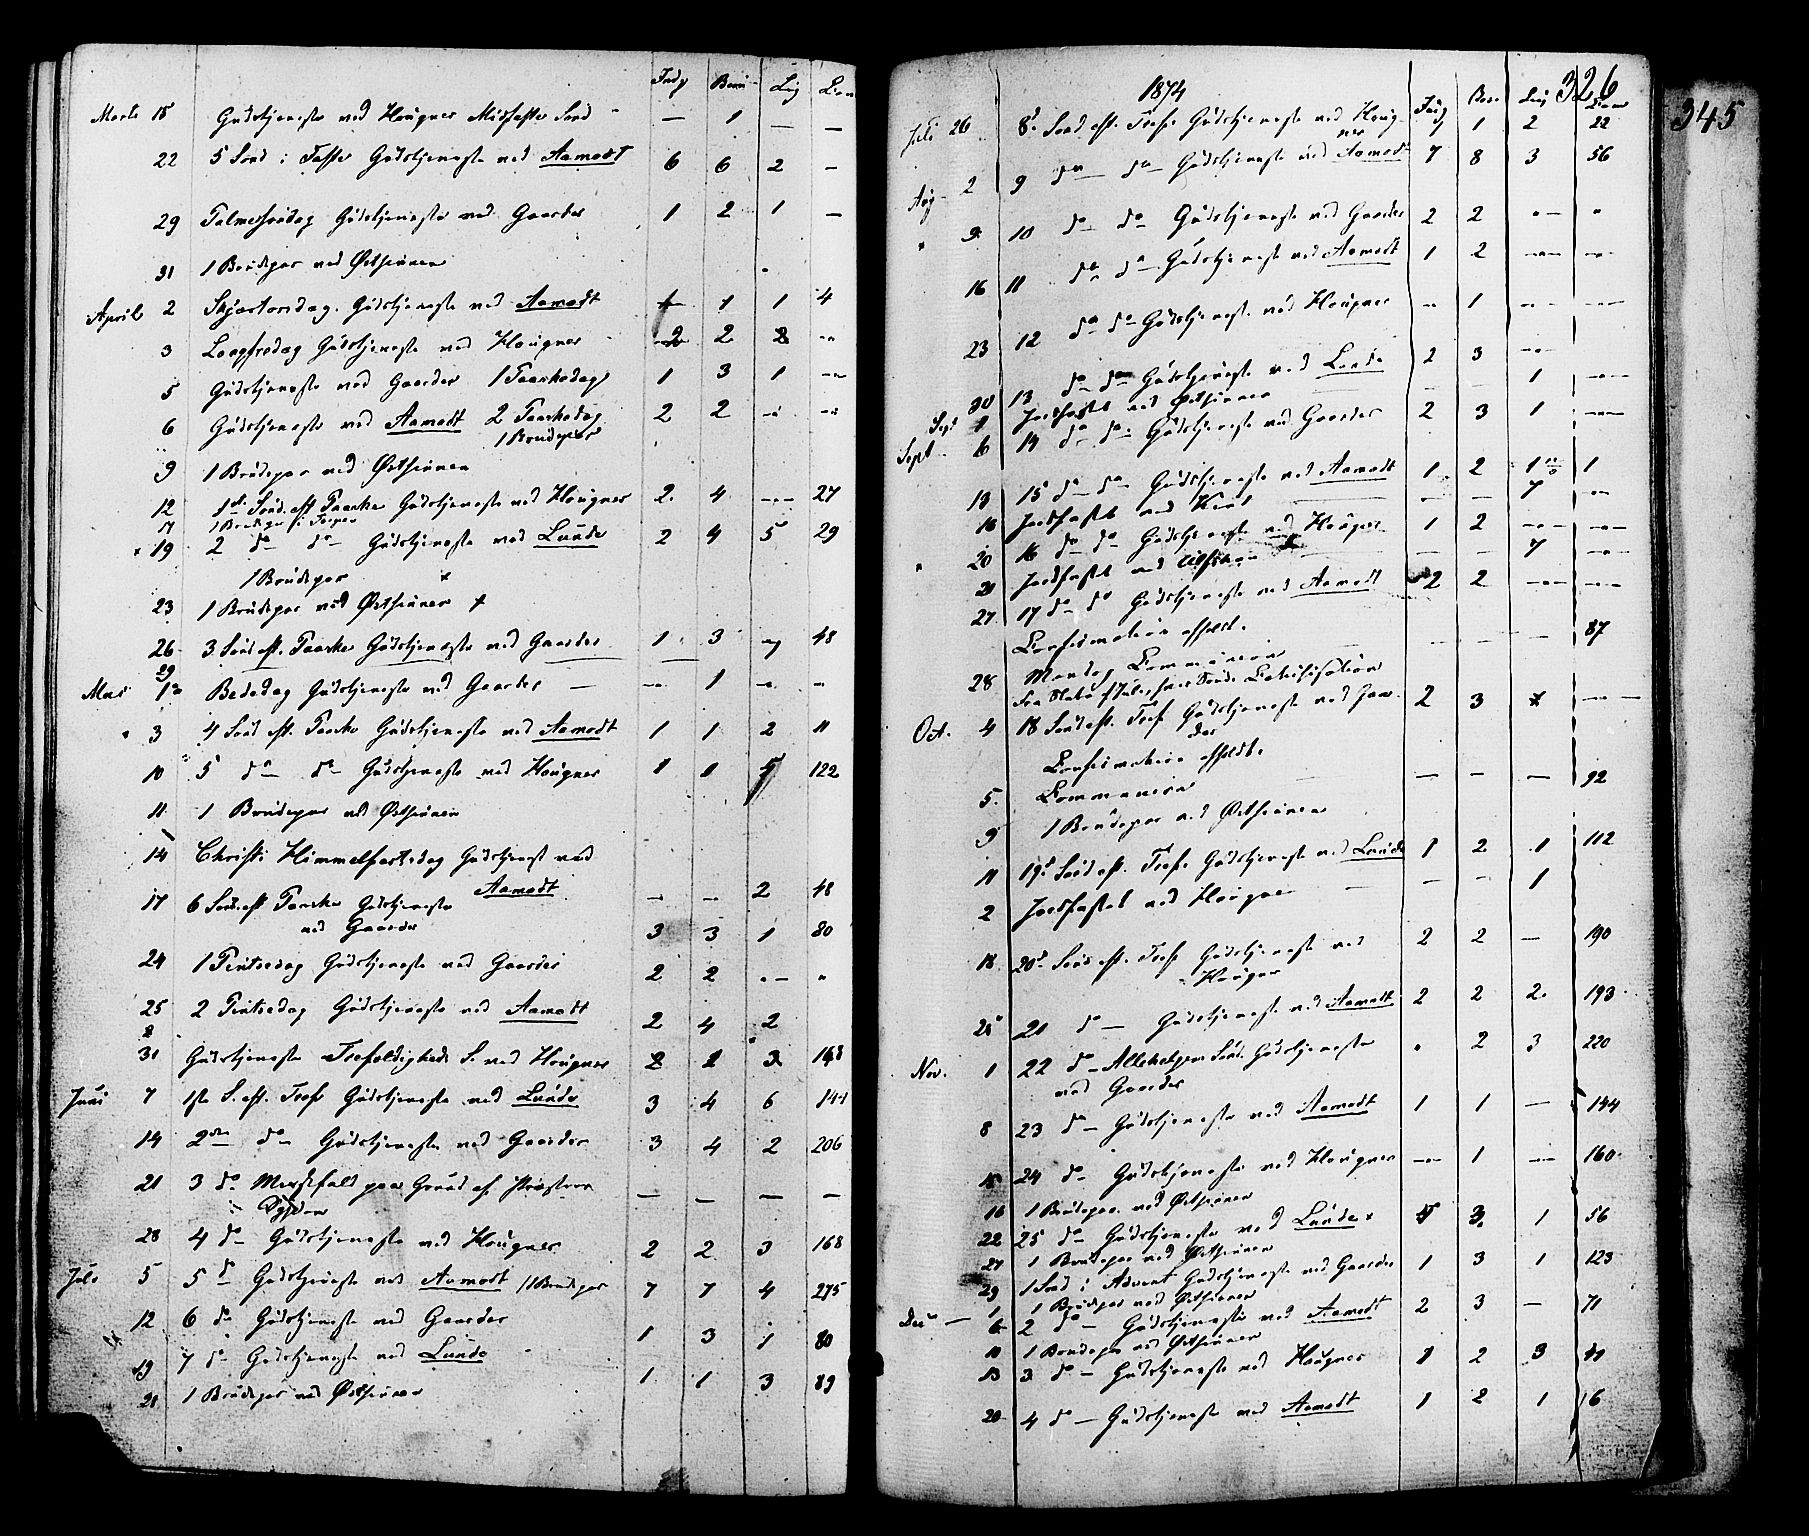 Indg Børn Lig Com
Marts 15 Gudstjeneste ved Hougner Midfaste Sønd — 1 — —
22 5 Sønd i Faste Gudstjeneste ved Aamodt 6 6 2 —
29 Palmesøndag Gudstjeneste ved Gaarder 1 2 1 —
31 1 Brudepar ved Østsinnen
April 2 Skjærtorsdag. Gudstjeneste ved Aamodt 1 1 4
3 Langfredag Gudstjeneste ved Hougner 2 2
5 Gudstjeneste ved Gaarder 1 Paaskedag 1 3 1 —
6 Gudstjeneste ved Aamodt 2 Paaskedag 2 2
1 Brudepar
9 1 Brudepar ved Østsinnen
12 1ste Sønd. eft Paaske Gudstjeneste ved Hougner 2 4 — 27
17 1 Brudepar i Torpen
19 2 do do Gudstjeneste ved Lunde 2 4 5 29
1 Brudepar x
23 1 Brudepar ved Østsinnen x
26 3 Sønd eft. Paaske Gudstjeneste ved Gaarder 1 3 48
29
Mai 1 Bededag Gudstjeneste ved Gaarder — 1 — —
3 4 Sønd eft. Paaske Gudstjeneste ved Aamodt 1 1 2 11
10 5 do do Gudstjeneste ved Hougner 1 1 122
11 1 Brudepar ved Østsinnen
14 Christi Himmelfartsdag Gudstjenest ved
Aamodt — — 2 48
17 6 Sønd. eft Paaske Gudstjeneste
ved Gaarder 3 3 1 80
24 1 Pintsedag Gudstjeneste ved Gaarder 2 2 —
25 2 Pintsedag Gudstjeneste ved Aamodt 2 4 2
31 Gudstjeneste Trefoldigheds S. ved Hougner 168
Juni 7 1ste S. eft. Tref Gudstjeneste ved Lunde 3 4 6 144
14 2den do Gudstjeneste ved Gaarder 3 4 2 206
21 3 do Messefald paa Grund af Præstens — — — —
Sygdom
28 4 do Gudstjeneste ved Hougner 2 2 3 168
Juli 5 5 do Gudstjeneste ved Aamodt 1 Brudepar 7 7 4 275
12 6 do Gudstjeneste ved Gaarder 1 3 1 80
19 7 do Gudstjeneste ved Lunde 1 1 3 89
21 1 Brudepar ved Østsinnen
326
345
1874
Indg Børn Lig Com
Juli 26 8de Sønd. eft. Tref. Gudstjeneste ved Houg- 1 1 2 22
ner
Aug 2 9 do do Gudstjeneste ved Aamodt 7 8 3 56
9 10 do do Gudstjeneste ved Gaarder 2 2
16 11 do do Gudstjeneste ved Aamodt 1 2
23 12 do do Gudstjeneste ved Hougner — 1
30 13 do do Gudstjeneste ved Lunde 2 3 —
Sept Jordfæstet ved Østsinnen 1
Sept 6 14 do do Gudstjeneste ved Gaarder 2 3 1
13 15 do do Gudstjeneste ved Aamodt 1 2 1 1
16 Jordfæstet ved 7
20 16 do do Gudstjeneste ved Hougner 1 2
21 Jordfæstet ved 7
27 17 do do Gudstjeneste ved Aamodt 2 2
Confirmation afholdt. 87
28 Mandag Communion
Catechisation
Oct. 4 18 Sønd eft. Tref Gudstjeneste ved Gaar- 2 3
der
Confirmation afholdt.
5. Communion — — — 92
9 1 Brudepar ved Østsinnen
11 19de Sønd eft. Tref. Gudstjeneste ved Lunde 1 2 1 112
2 Jordfæstet ved Hougner — — 1
18 20de Sønd eft. Tref Gudstjeneste ved 2 2 — 190
Hougner
25 21 do — Gudstjeneste ved Aamodt 2 2 2 193
Nov. 1 22 do Allehelgen Sønd. Gudstjeneste 2 3 220
ved Gaarder
8 23 do Gudstjeneste ved Aamodt 1 1 — 144
15 24 do Gudstjeneste ved Hougner — 1 — 160
16 1 Brudepar ved Østsinnen
22 25 do Gudstjeneste ved Lunde x 3 1 56
27 1 Brudepar ved Østsinnen
29 1 Sønd i Advent Gudstjeneste ved Gaarder 1 3 1 123
1 1 Brudepar ved Østsinnen
Decr — 6 2 do Gudstjeneste ved Aamodt 2 3 — 71
10 1 Brudepar ved Østsinnen
13 3 do — Gudstjeneste ved Hougner 1 2 3
20 4 do — Gudstjeneste ved Aamodt 1 2 1 16